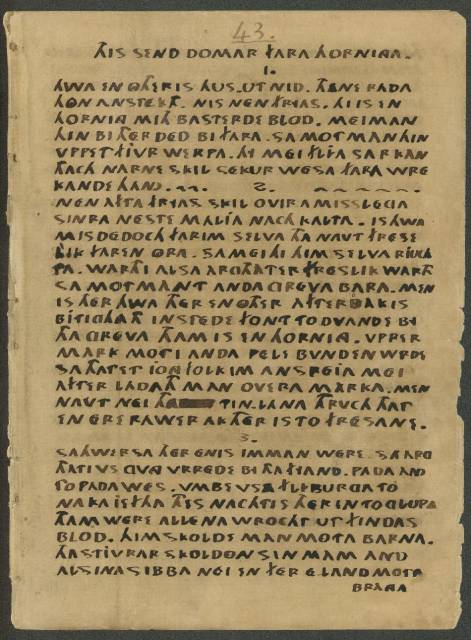 43.
THIS SEND DOMAR FARA HORNINGA.
1.
HWA EN OTHERIS HUS. UT NID. THENE RADA
HON ANSTEKT. NIS NEN FRYAS. HI IS EN
HORNING MITH BASTERDE BLOD. MEI MAN
HIN BI THER DED BIFARA. SA MOT MAN HIN
VPPET FIVR WERPA. HI MEI FLIA SA R KAN
THACH NARNE SKIL SEKUR WESA FARA WRE
KANDE HAND. 2.
NEN AFTA FRYAS SKIL OVIRA MISSLEGA
SINRA NESTE MALIA NACH KALTA. IS HWA
MISDEDOCH FARIM SELVA THA NAVT FRESE
LIK FAR EN ORA. SA MEI HI HIM SELVA RIUCH
TA. WARTH I ALSA ARG THATER FRESLIK WARTH
SA MOT MANT ANDA GREVA BARA. MEN
IS THER HWA THER EN OTHER AFTERBAKIS
BITIGHATH INSTEDE FONT TO DVANDE BI
THA GREVA THAM IS EN HORNING. VPPER
MARK MOT I ANDA PELE BUNDEN WRDE
SA THATET IONG FOLK IM ANSPEIA MEI
AFTER LADATH MAN OVERA MARKA. MEN
NAVT NEI THA TIN.LANA THRVCH THAT
EN ERERAWER AK THER IS TO FRESANE.
3.
SAHWERSA THER ENIS IMMAN WERE. SA ARG
THAT I VS GVNG VRREDE BI THA FIAND. PADA AND
TO PADA WES. VMBE VSA FLIBURGA TO
NAKA IEFTHA THES NACHTIS THERIN TO GLUPA
THAM WERE ALLENA WROCHT UT FINDAS
BLOD. HIM SKOLDE MAN MOTA BARNA.
THA STIVRAR SKOLDON SIN MAM AND
AL SINA SIBBA NEI EN FERE LAND MOTA
BRANGA